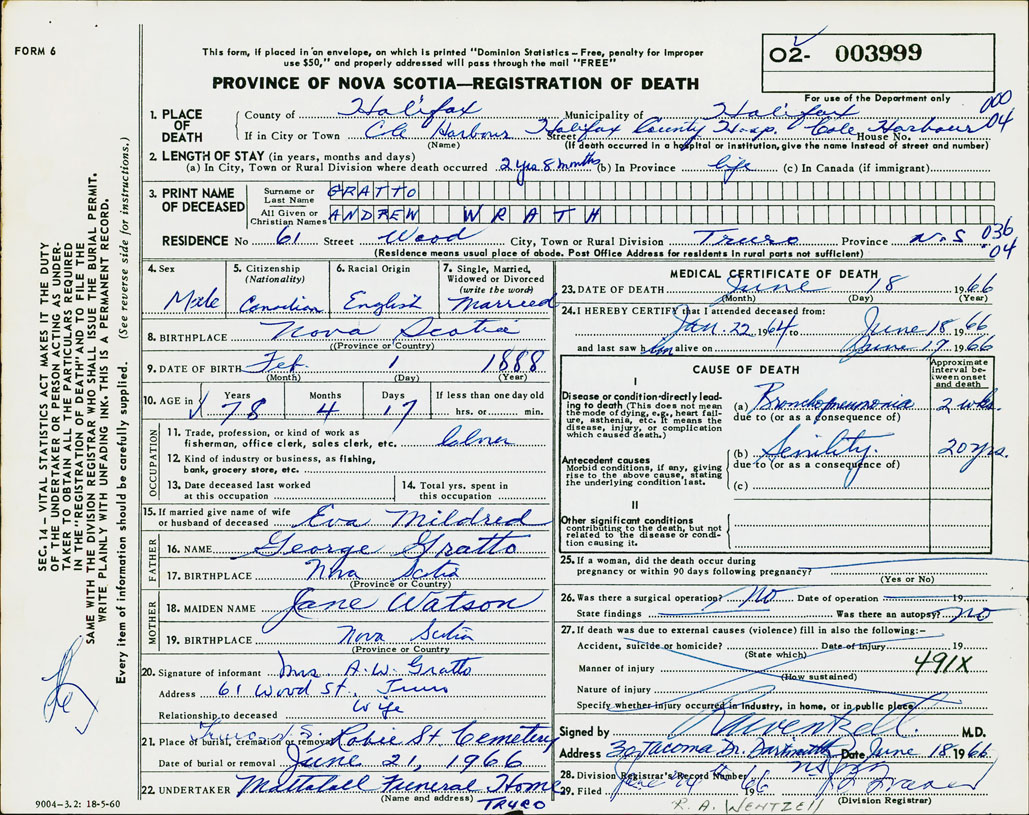 FORM 6
This form, if placed in an envelope, on which is printed "Dominion Statistics – Free, penalty for improper
use $50," and properly addressed will pass through the mail "FREE"
02- 003999
PROVINCE OF NOVA SCOTIA—REGISTRATION OF DEATH
For use of the Department only
1. PLACE OF DEATH
County of Halifax Municipality of Halifax 000
If in City or Town Cole Harbour Street Halifax County Hosp. Cole Harbour House No. 04
(Name) (If death occurred in a hospital or institution, give the name instead of street and number)
2. LENGTH OF STAY (in years, months and days)
(a) In City, Town or Rural Division where death occurred 2 yrs 8 months (b) In Province life (c) In Canada (if immigrant)
3. PRINT NAME OF DECEASED
Surname or Last Name GRATTO
All Given or Christian Names ANDREW WRATH
RESIDENCE No 61 Street Wood City, Town or Rural Division Truro Province N.S 036 04
(Residence means usual place of abode. Post Office Address for residents in rural parts not sufficient)
4. Sex Male
5. Citizenship (Nationality) Canadian
6. Racial Origin English
7. Single, Married, Widowed or Divorced (write the word) Married
8. BIRTHPLACE Nova Scotia
(Province or Country)
9. DATE OF BIRTH Feb. 1 1888
(Month) (Day) (Year)
10. AGE in Years 78 Months 4 Days 17 If less than one day old hrs. or min.
OCCUPATION
11. Trade, profession, or kind of work as
fisherman, office clerk, sales clerk, etc.
12. Kind of industry or business, as fishing,
bank, grocery store, etc.
13. Date deceased last worked at this occupation
14. Total yrs. spent in this occupation
15. If married give name of wife or husband of deceased Eva Mildred
FATHER
16. NAME George Gratto
17. BIRTHPLACE Nova Scotia
(Province or Country)
MOTHER
18. MAIDEN NAME Jane Watson
19. BIRTHPLACE Nova Scotia
(Province or Country)
20. Signature of informant Mrs A.W. Gratto
Address 61 Wood St., Truro
Relationship to deceased Wife
21. Place of burial, cremation or removal Truro N.S. Robie St. Cemetery
Date of burial or removal June 21, 1966
22. UNDERTAKER Mattatall Funeral Home
(Name and address) TRURO
9004-3.2: 18-5-60
MEDICAL CERTIFICATE OF DEATH
23. DATE OF DEATH June 18 1966
(Month) (Day) (Year)
24. I HEREBY CERTIFY that I attended deceased from:
Jan. 22 1964 to June 18 1966
and last saw him alive on June 17 1966
CAUSE OF DEATH
Approximate interval between onset and death
I
Disease or condition directly leading to death (This does not mean the mode of dying, e.g., heart failure, asthenia, etc. It means the disease, injury, or complication which caused death.)
(a) Bronchopneumonia 2 wks.
due to (or as a consequence of)
Antecedent causes
Morbid conditions, if any, giving rise to the above cause, stating the underlying condition last.
(b) Senility. 20 yrs.
due to (or as a consequence of)
(c)
II
Other significant conditions
contributing to the death, but not related to the disease or condition causing it.
25. If a woman, did the death occur during
pregnancy or within 90 days following pregnancy?
(Yes or No)
26. Was there a surgical operation? NO Date of operation 19
State findings Was there an autopsy? NO
27. If death was due to external causes (violence) fill in also the following:—
Accident, suicide or homicide? Date of injury 19
(State which)
Manner of injury 491X
(How sustained)
Nature of injury
Specify whether injury occurred in industry, in home, or in public place
Signed by M.D.
Address 30 Tacoma Dr. Dartmouth Date June 18 1966
NS
28. Division Registrar's Record Number
29. Filed June 24 1966
(Division Registrar)
R. A. WENTZELL
SEC. 14 – VITAL STATISTICS ACT MAKES IT THE DUTY
OF THE UNDERTAKER OR PERSON ACTING AS UNDER-
TAKER TO OBTAIN ALL THE PARTICULARS REQUIRED
IN THE "REGISTRATION OF DEATH" AND TO FILE THE
SAME WITH THE DIVISION REGISTRAR WHO SHALL ISSUE THE BURIAL PERMIT.
WRITE PLAINLY WITH UNFADING INK. THIS IS A PERMANENT RECORD.
Every item of information should be carefully supplied. (See reverse side for instructions.)